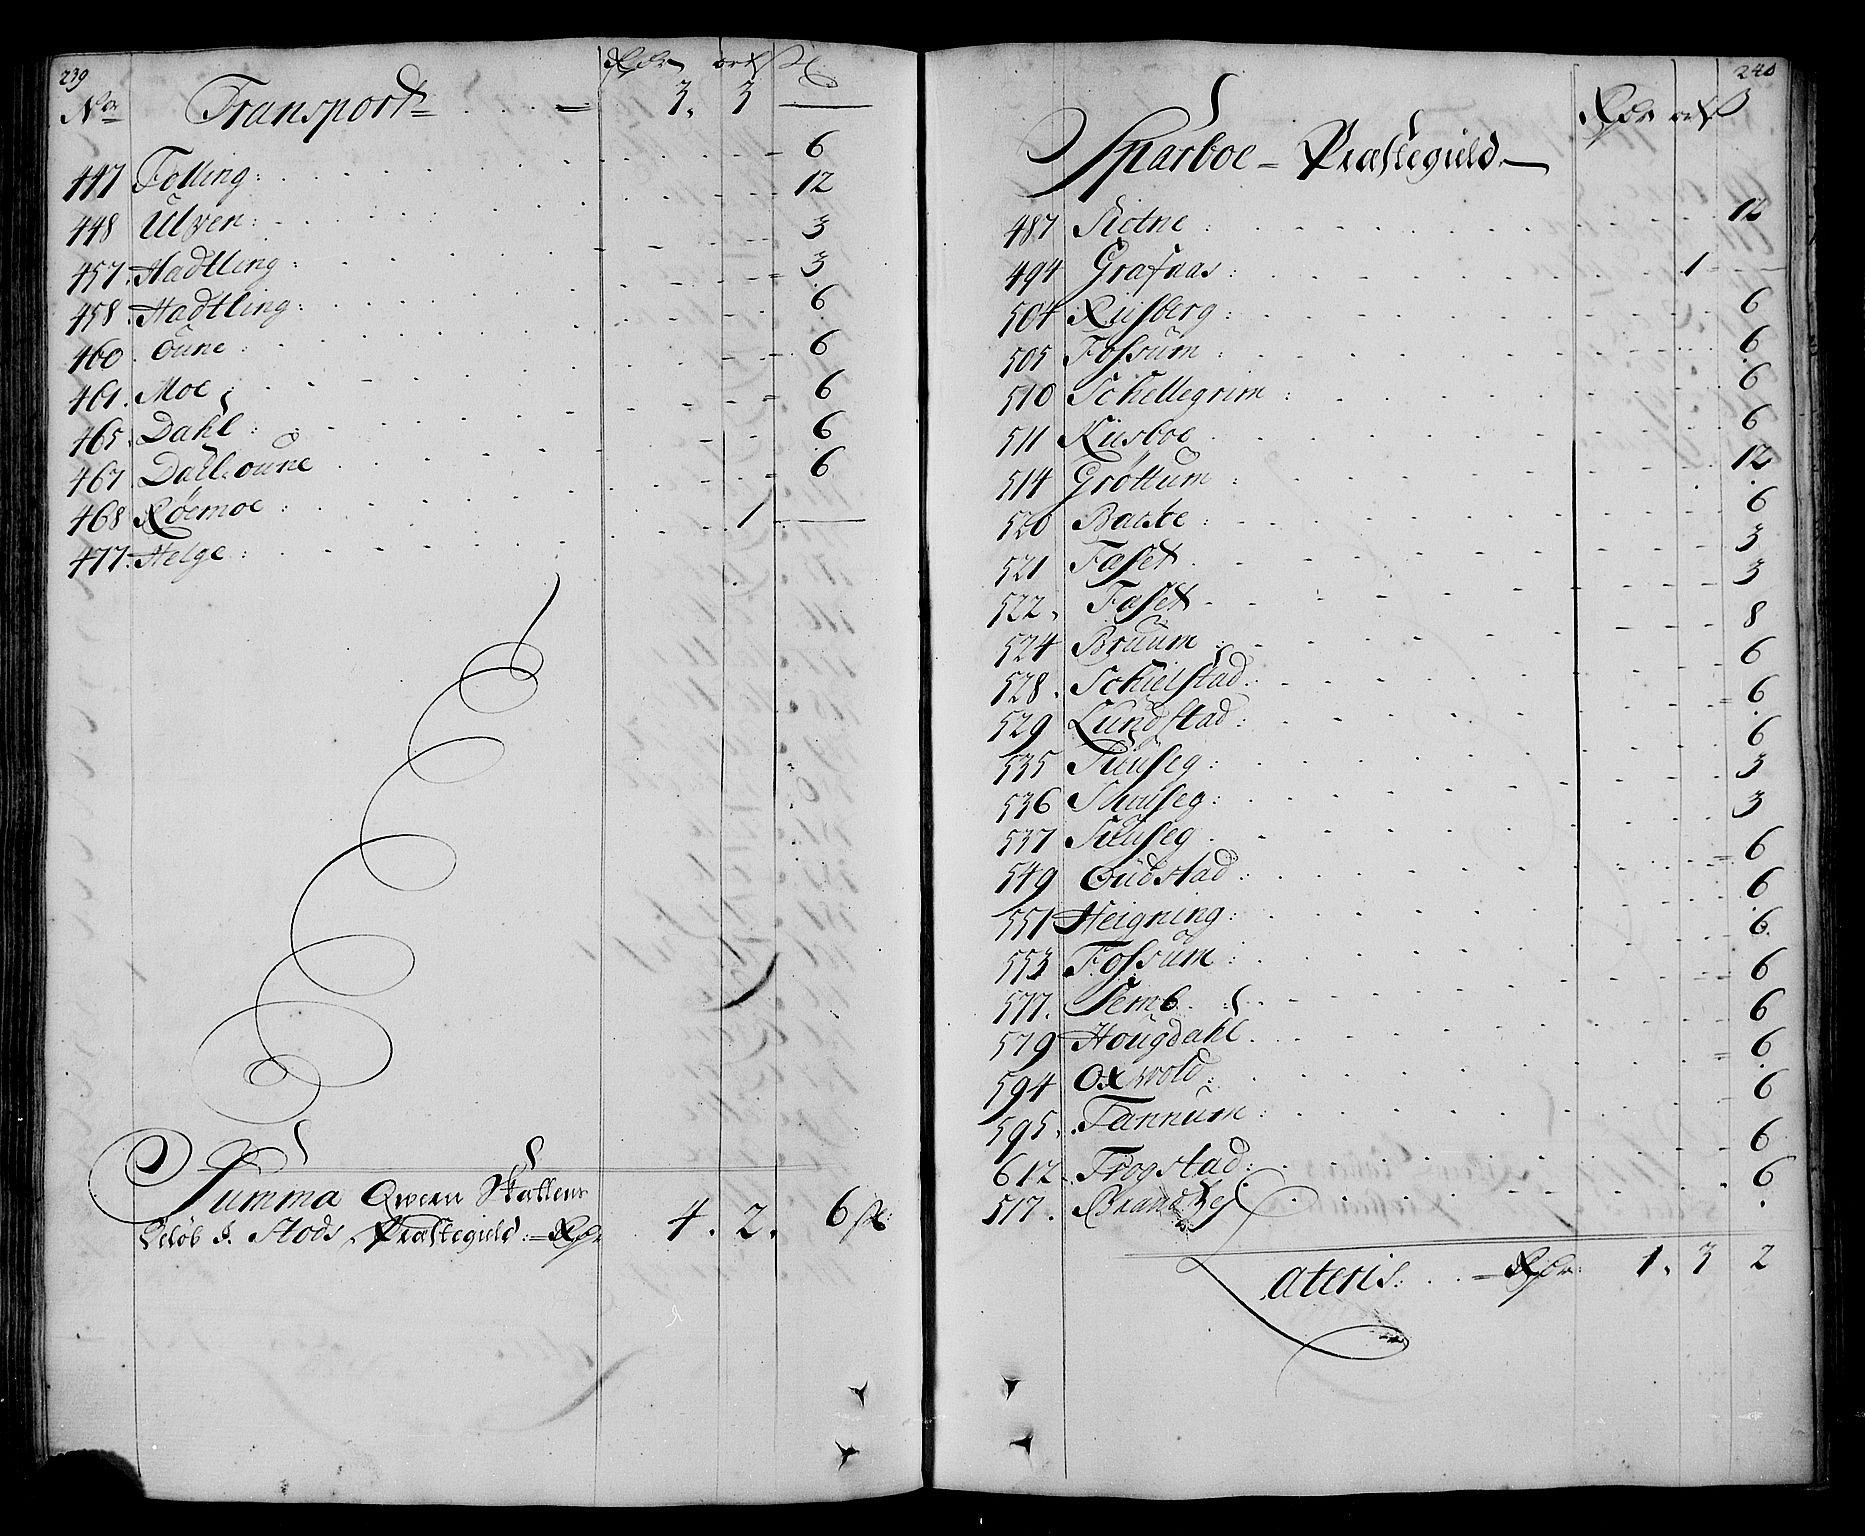 239
Rdr ort ß
No Transport 3. 3 —
447 Folling: 6
448 Ulven: 12
457. Hadtling: 3
458. Hadtling: 3
460. Oune: 6
461. Moe: 6
465. Dahl: 6
467 Dahl: oune 6
468 Røemoe: 6
477. Helge: 1 —
Summa Qwern Skatten
Beløb i Stods Præstegield: Rdr 4. 2. 6 ß:
240
Rdr ort ß
Sparboe Præstegield
487 Skotne: 12
494 Grafnas: 1 —
504 Riisberg: 6
505 Fossum: 6
510 Schellegrim: 6
511 Riisboe 6
514 Grøttum: 12
520 Baske: 6
521 Faset 3
522. Faset 3
524 Bruum: 8
528. Schielstad: 6
529 Lundstad: 6
535 Tuuseg: 6
536 Tuuseg: 3
537 Tuuseg 3
549 Gudstad: 6
551 Heigning: 6
553 Fossum: 6
577. Semb: 6
579 Hougdahl 6
594 Oxwold: 6
595. Tannum: 6
612. Frogstad: 6
517. Brandheg 6
Lateris: Rdr: 1. 3 2